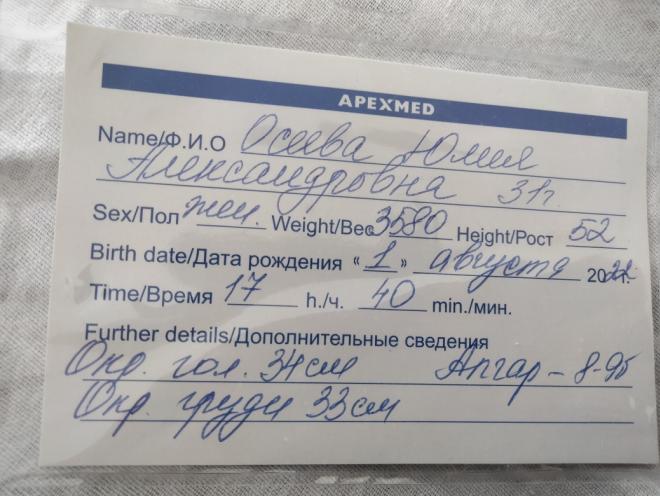 APEXMED
Name/Ф.И.О Осеева Юлия
Александровна 3п
Sex/Пол жен. Weight/Вес 3580 Height/Рост 52
Birth date/Дата рождения « 1 » августа 2022г.
Time/Время 17 h./ч. 40 min./мин.
Further details/Дополнительные сведения
Окр. гол. 34см Апгар – 8-9б
Окр. груди 33см